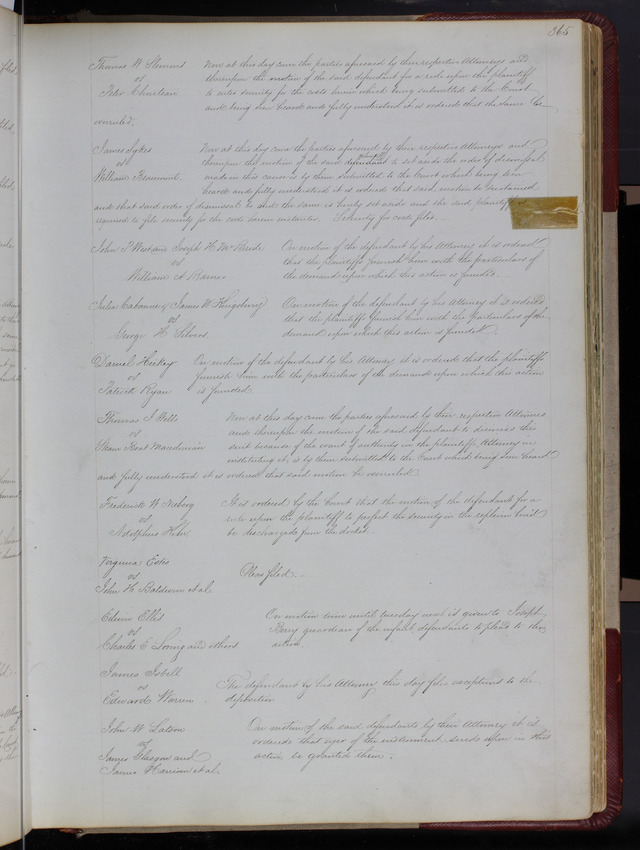 365
Thomas W Stevens Now at this day came the parties aforesaid by their respective Attorneys and
vs thereupon the motion of the said defendant for a rule upon the plaintiff
Peter Chouteau to enter security for the costs herein which being submitted to the Court
and being seen heard and fully understood it is ordered that the same be
overruled.
James Sykes Now at this day came the parties aforesaid by their respective Attorneys and
vs thereupon the motion of the said defendant to set aside the order of dismissal
William made in this cause is by them submitted to the Court which being seen
heard and fully understood it is ordered that said motion be sustained
and that said order of dismissal be and the same is hereby set aside and the said plaintiff
required to file security for the costs herein instanter. Security for costs filed.
John P West and Joseph H McBride On motion of the defendant by his Attorney it is ordered
vs that the plaintiffs furnish him with the particulars of
William A Barnes the demand upon which this action is founded.
Julia Cabanne & James W Kingsbury On motion of the defendant by his Attorney it is ordered
vs that the plaintiffs furnish him with the particulars of the
George H Silvers demand upon which this action is founded.
Daniel Hickey On motion of the defendant by his Attorney it is ordered that the plaintiff
vs furnish him with the particulars of the demand upon which this action
Patrick Ryan is founded.
Thomas J Wells Now at this day came the parties aforesaid by their respective Attorneys
vs and thereupon the motion of the said defendant to dismiss this
Steam Boat Mandamian suit because of the want of authority in the plaintiffs Attorney in
instituting it, is by them submitted to the Court which being seen heard
and fully understood it is ordered that said motion be overruled.
Frederick W It is ordered by the Court that the motion of the defendant for a
vs rule upon the plaintiff to perfect the security in the replevin bond
Adolphus be discharged from the docket.
Virginia Estes
vs Pleas filed.
John H Baldwin et al
Edwin Ellis On motion time until tuesday next is given to Joseph
vs Berry guardian of the infant defendants to plead to this
Charles E Loring and others action.
James Isbell
vs The defendant by his Attorney this day files exceptions to the
Edward Warren deposition
John W Latson On motion of the said defendants by their Attorney it is
vs ordered that oyer of the instrument sued upon in this
James Glasgow and action be granted them.
James Harrison et al.